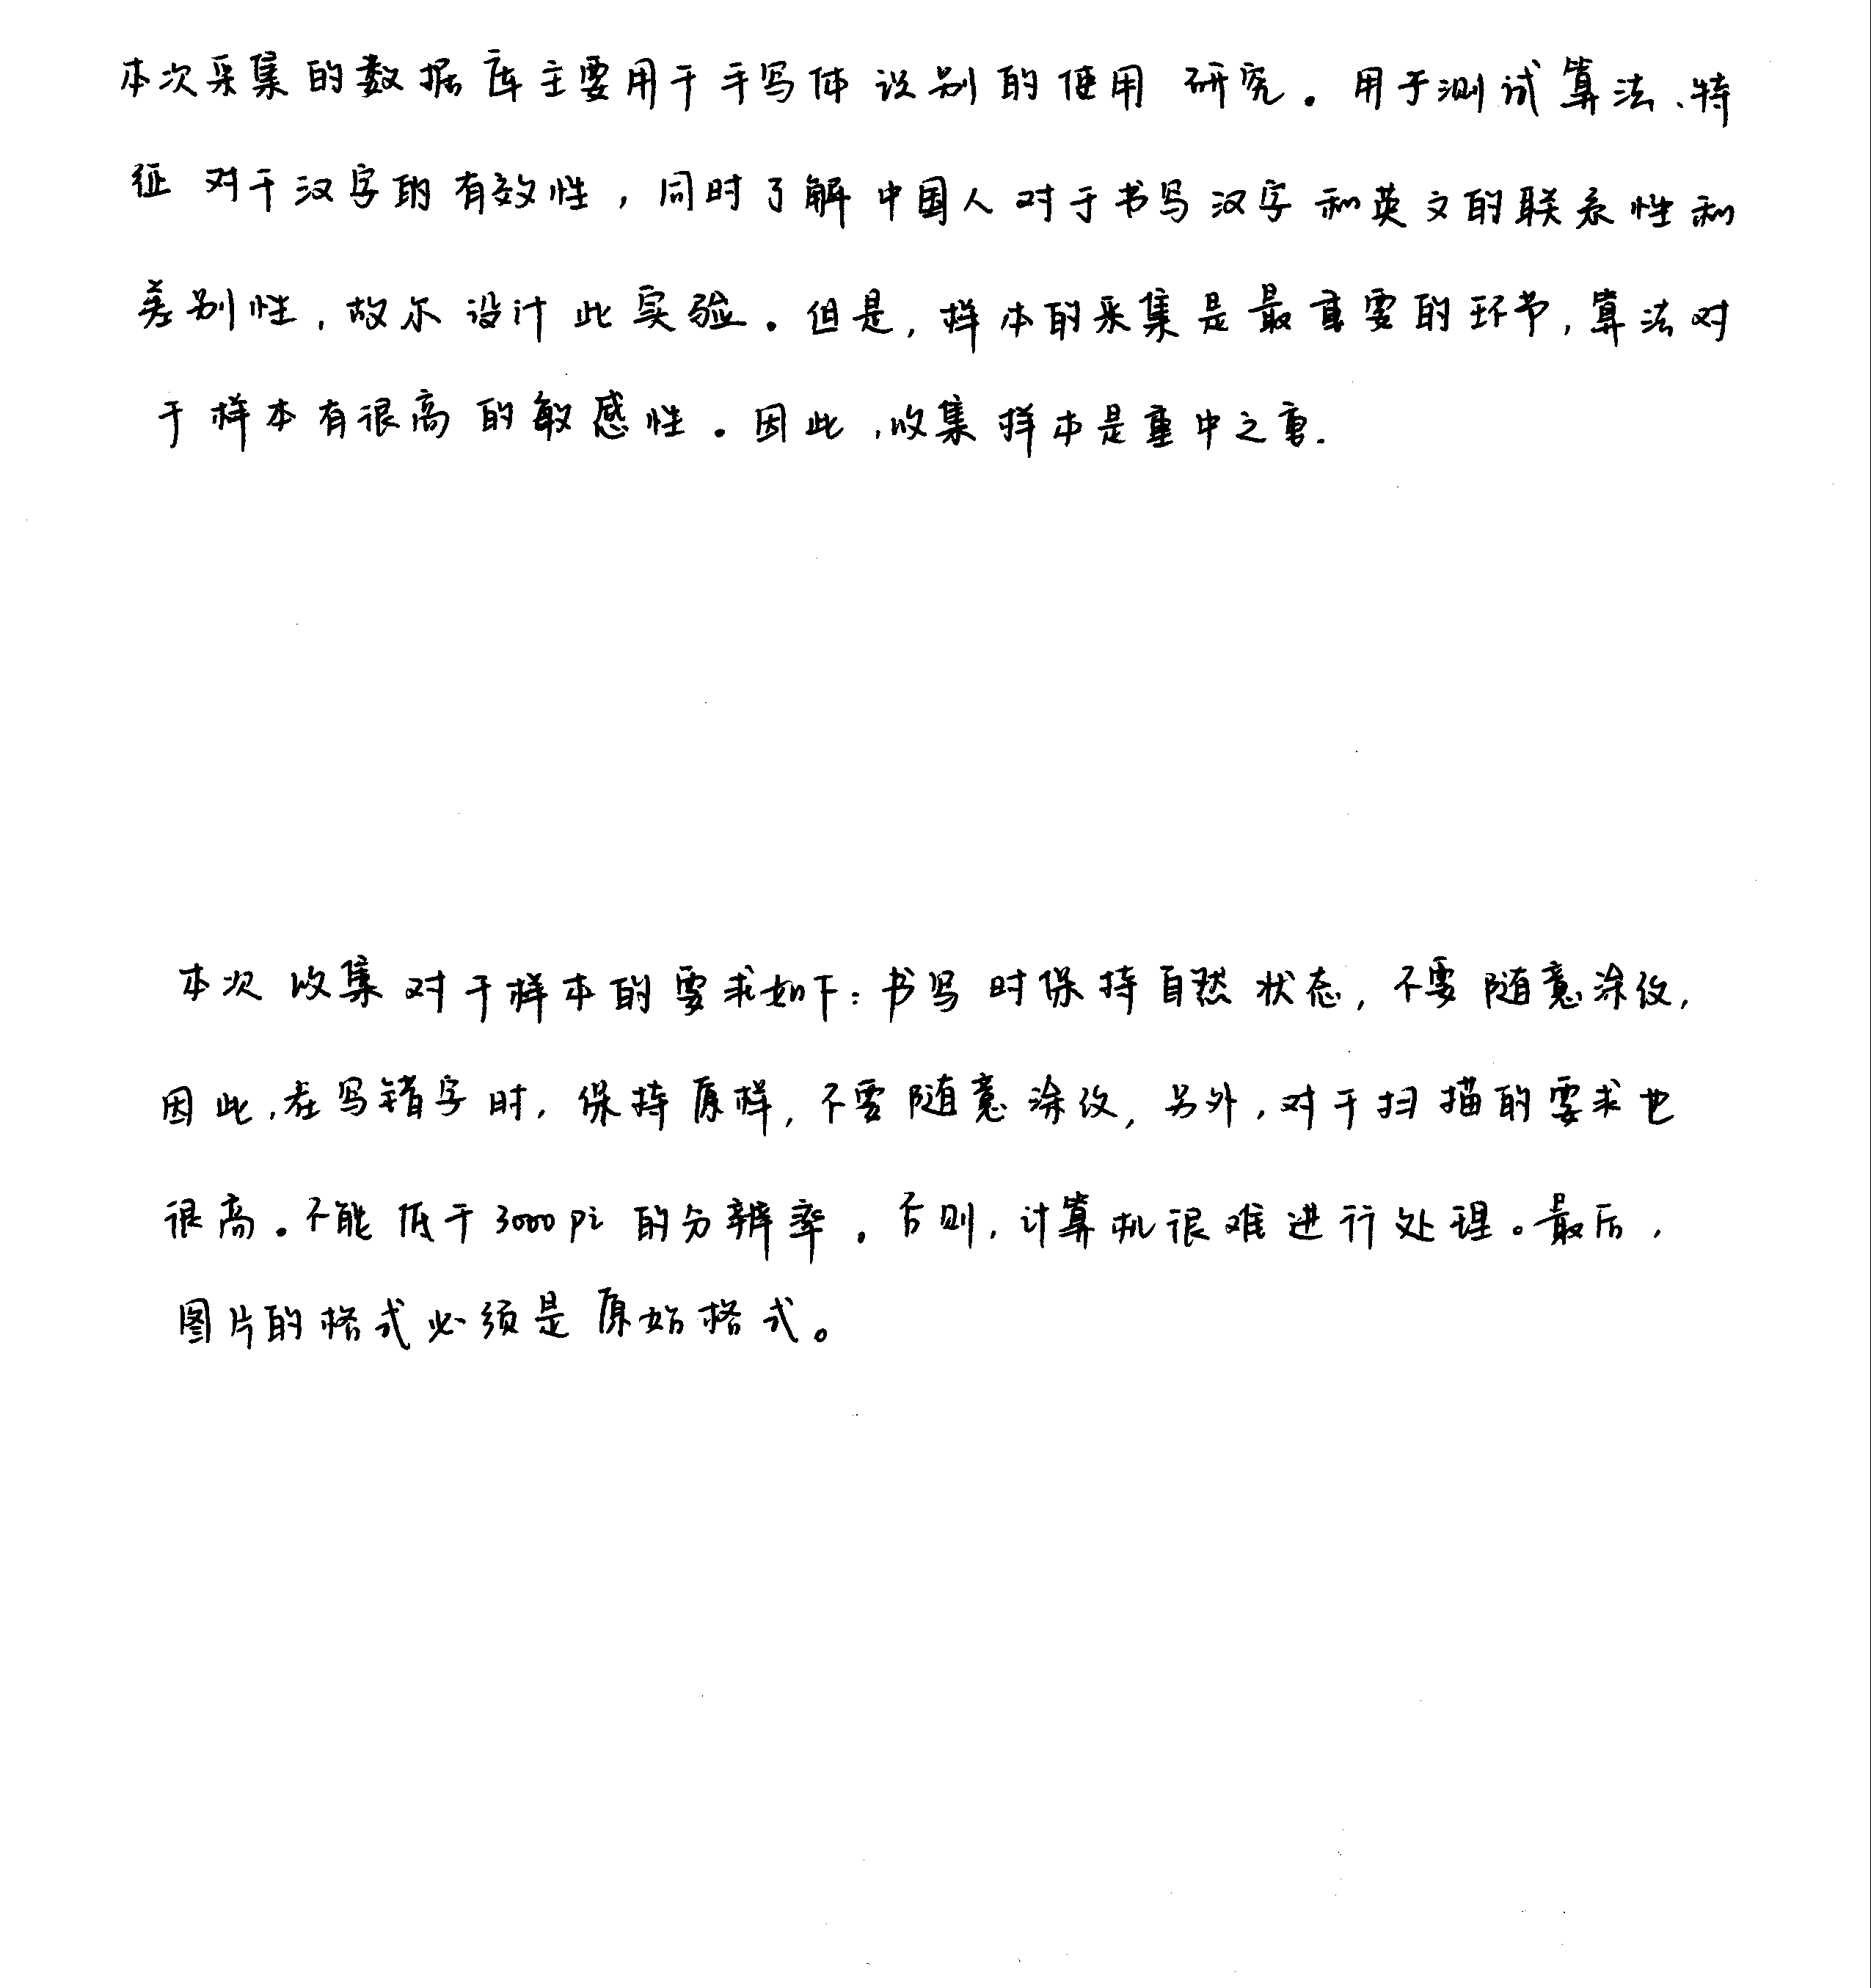 本次采集的数据库主要用于手写体识别的使用研究。用于测试算法、特
征对于汉字的有效性，同时了解中国人对于书写汉字和英文的联系性和
差别性，故尔设计此实验。但是，样本的采集是最重要的环节，算法对
于样本有很高的敏感性。因此，收集样本是重中之重.
本次收集对于样本的要求如下：书写时保持自然状态，不要随意涂改，
因此，在写错字时，保持原样，不要随意涂改，另外，对于扫描的要求也
很高。不能低于3000pi的分辨率。否则，计算机很难进行处理。最后，
图片的格式必须是原始格式。